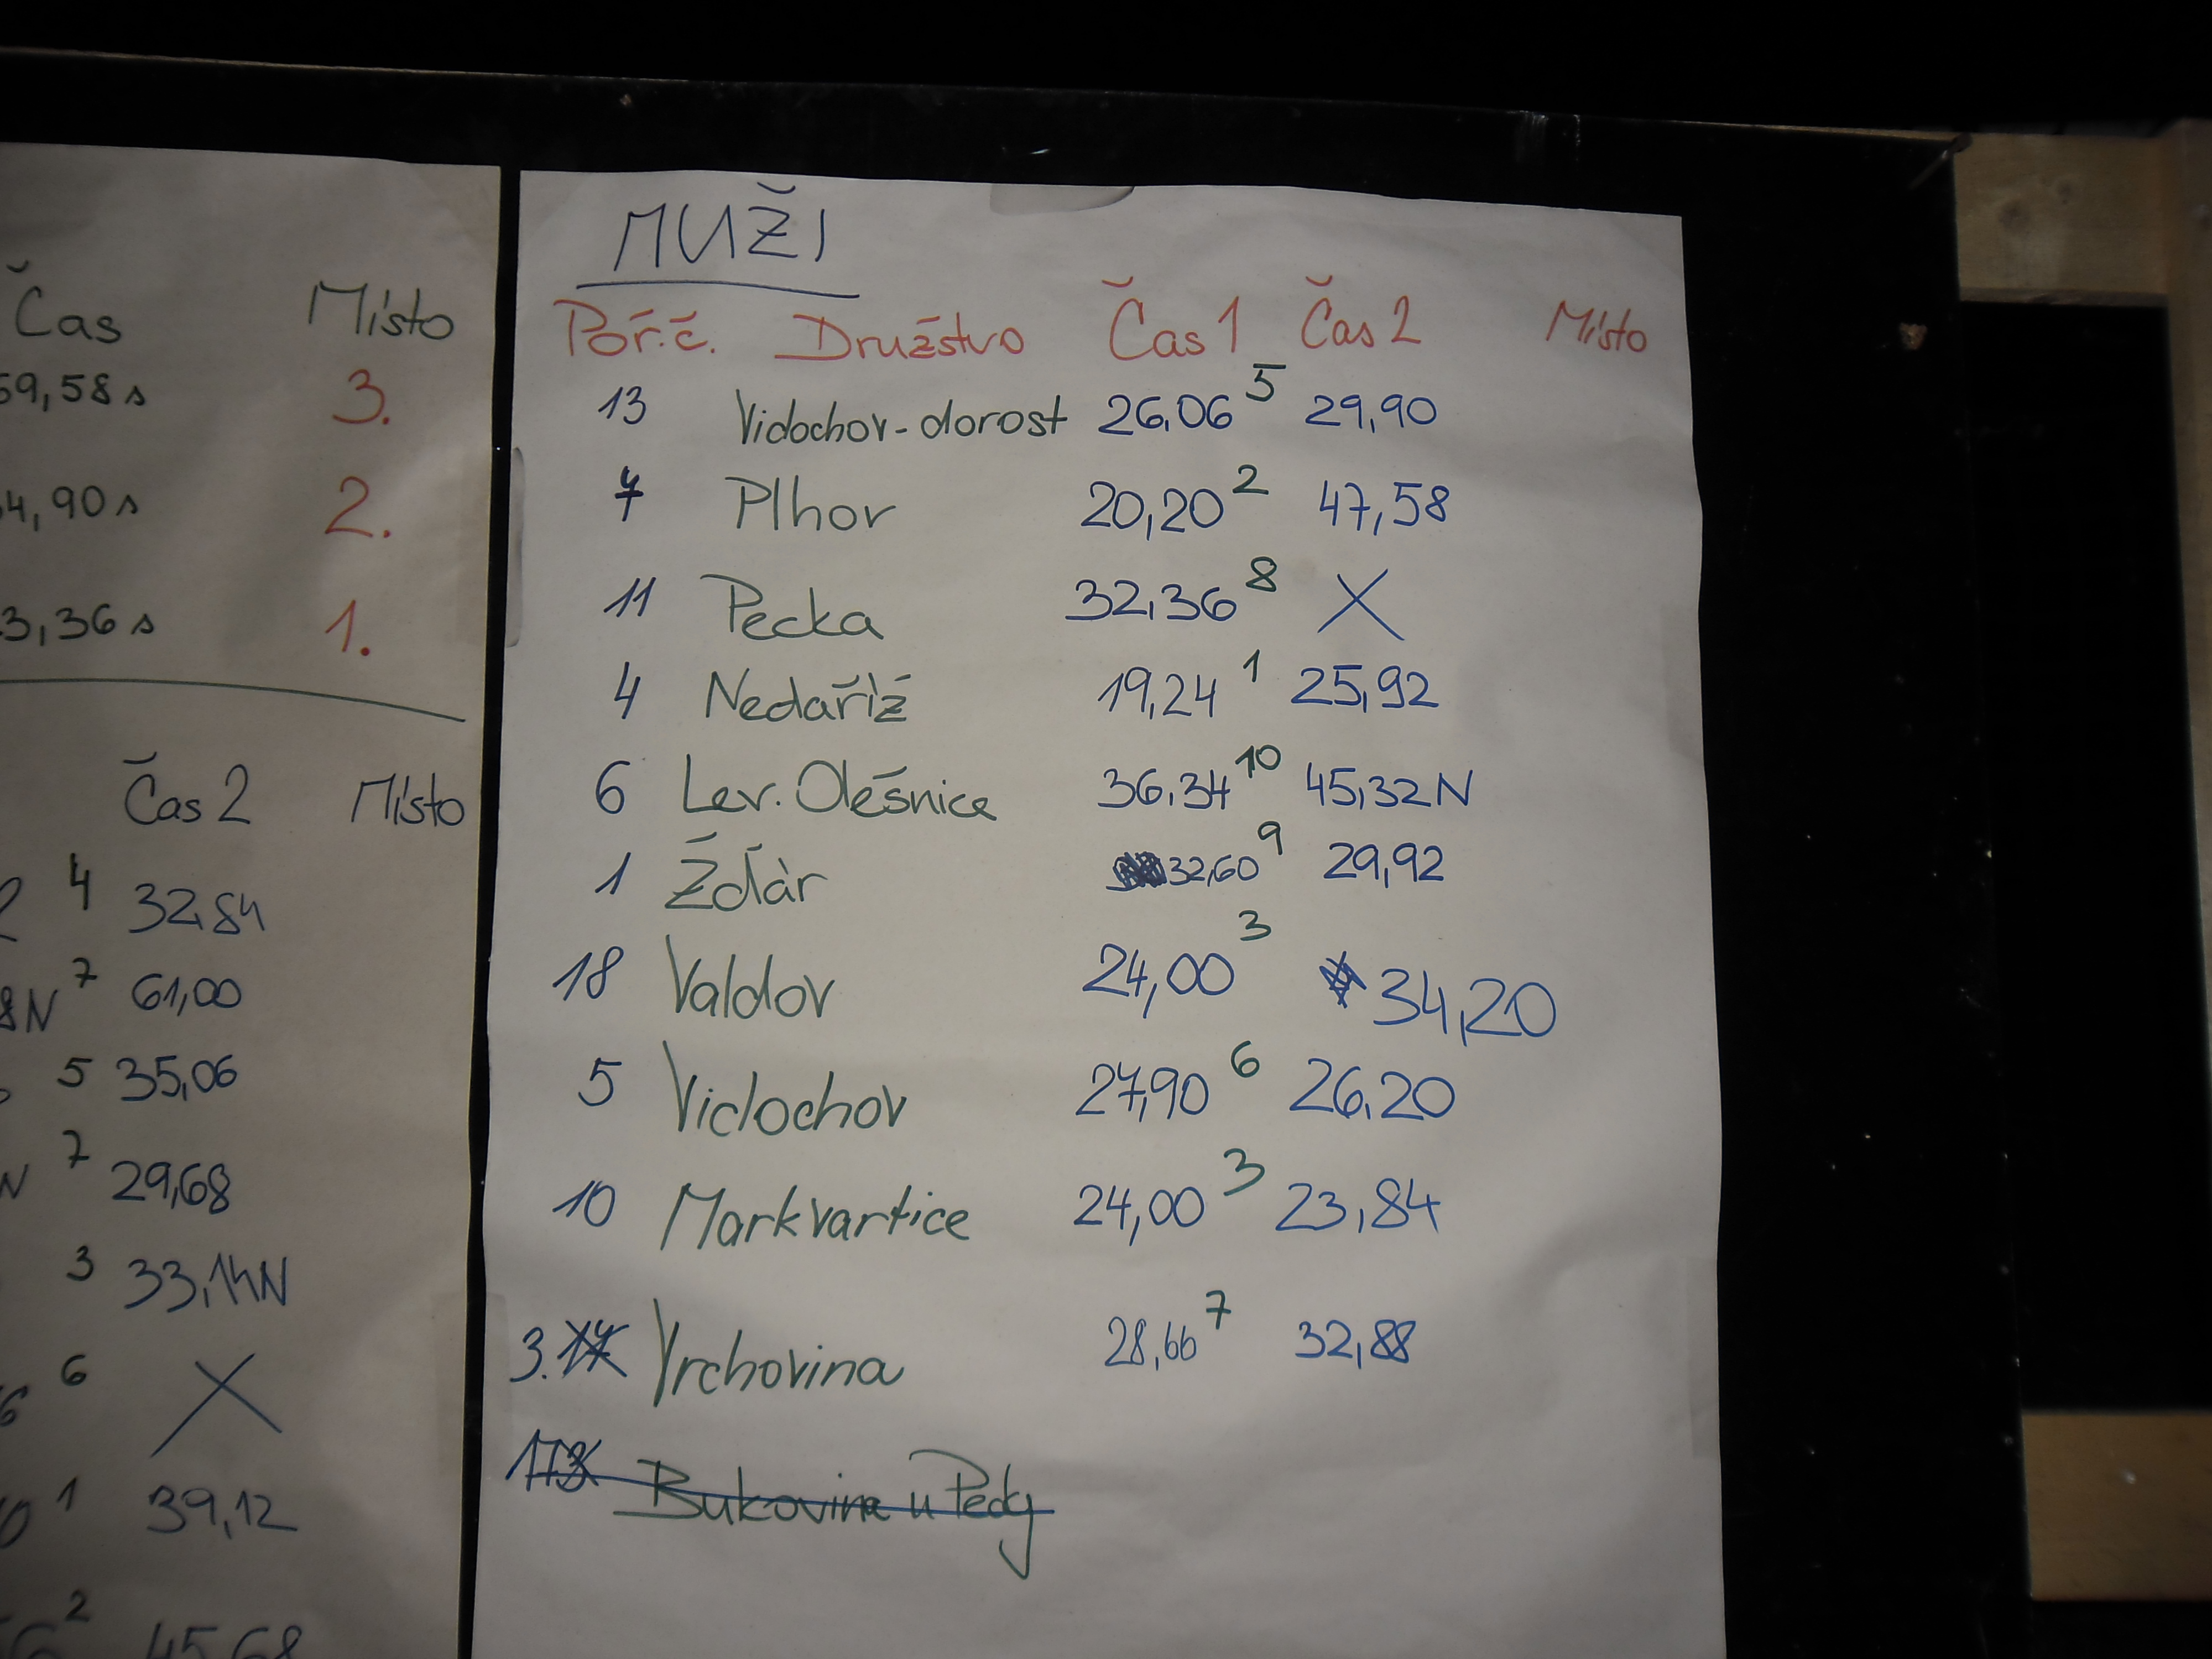 Čas Místo
59,58 s 3.
4,90 s 2.
3,36 s 1.
Čas 2 Místo
4 32,84
8N 7 61,00
5 35,06
N 7 29,68
3 33,14N
6 X
0 1 39,12
6 2 45,68
MUŽI
Poř.č. Družstvo Čas 1 Čas 2 Místo
13 Vidochov-dorost 26,06 5 29,90
7 Plhor 20,20 2 47,58
11 Pecka 32,36 8 X
4 Nedaříž 19,24 1 25,92
6 Lev. Olešnice 36,34 10 45,32N
1 Žďár 32,60 9 29,92
18 Valdov 24,00 3 34,20
5 Vidochov 27,90 6 26,20
10 Markvartice 24,00 3 23,84
3. Vrchovina 28,66 7 32,88
17 Bukovina u Pecky